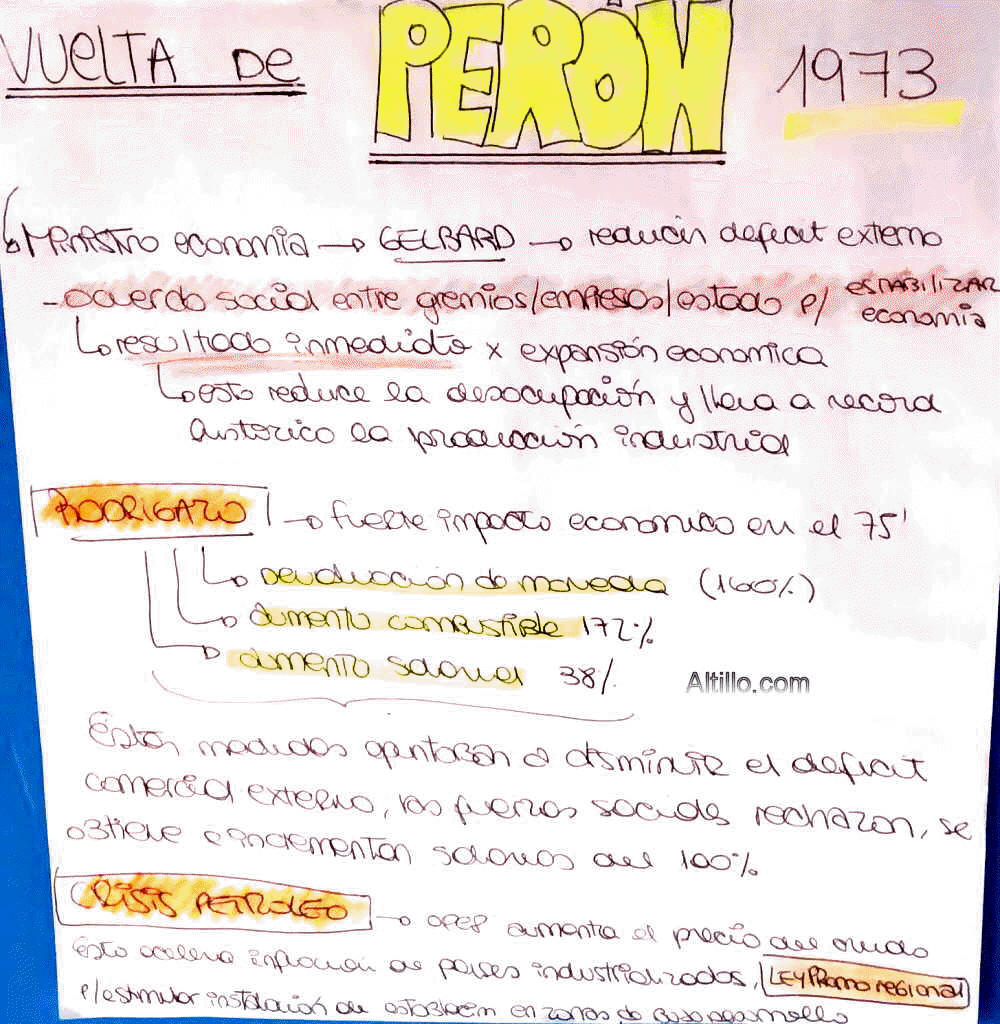 VUELTA DE PERÓN 1973
MINISTRO economia → GELBARD → reducir deficit externo
- acuerdo social entre gremios/empresas/estado p/ ESTABILIZAR economía
resultado inmediato x expansión economica
esto reduce la desocupación y lleva a record
historico la producción industrial
RODRIGAZO → fuerte impacto economico en el 75'
devaluación de moneda (160%)
aumento combustible 172%
aumento salarial 38%
Altillo.com
Estas medidas apuntaban a disminuir el deficit
comercial externo, las fuerzas sociales rechazan, se
obtiene e incrementan salarios del 100%
CRISIS PETROLEO → OPEP aumenta el precio del crudo
Esto acelera inflación de países industrializados, LEY PROMO REGIONAL
p/estimular instalación de establecim en zonas de bajo desarrollo